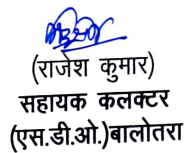 (राजेश कुमार)
सहायक कलक्टर
(एस.डी.ओ.)बालोतरा